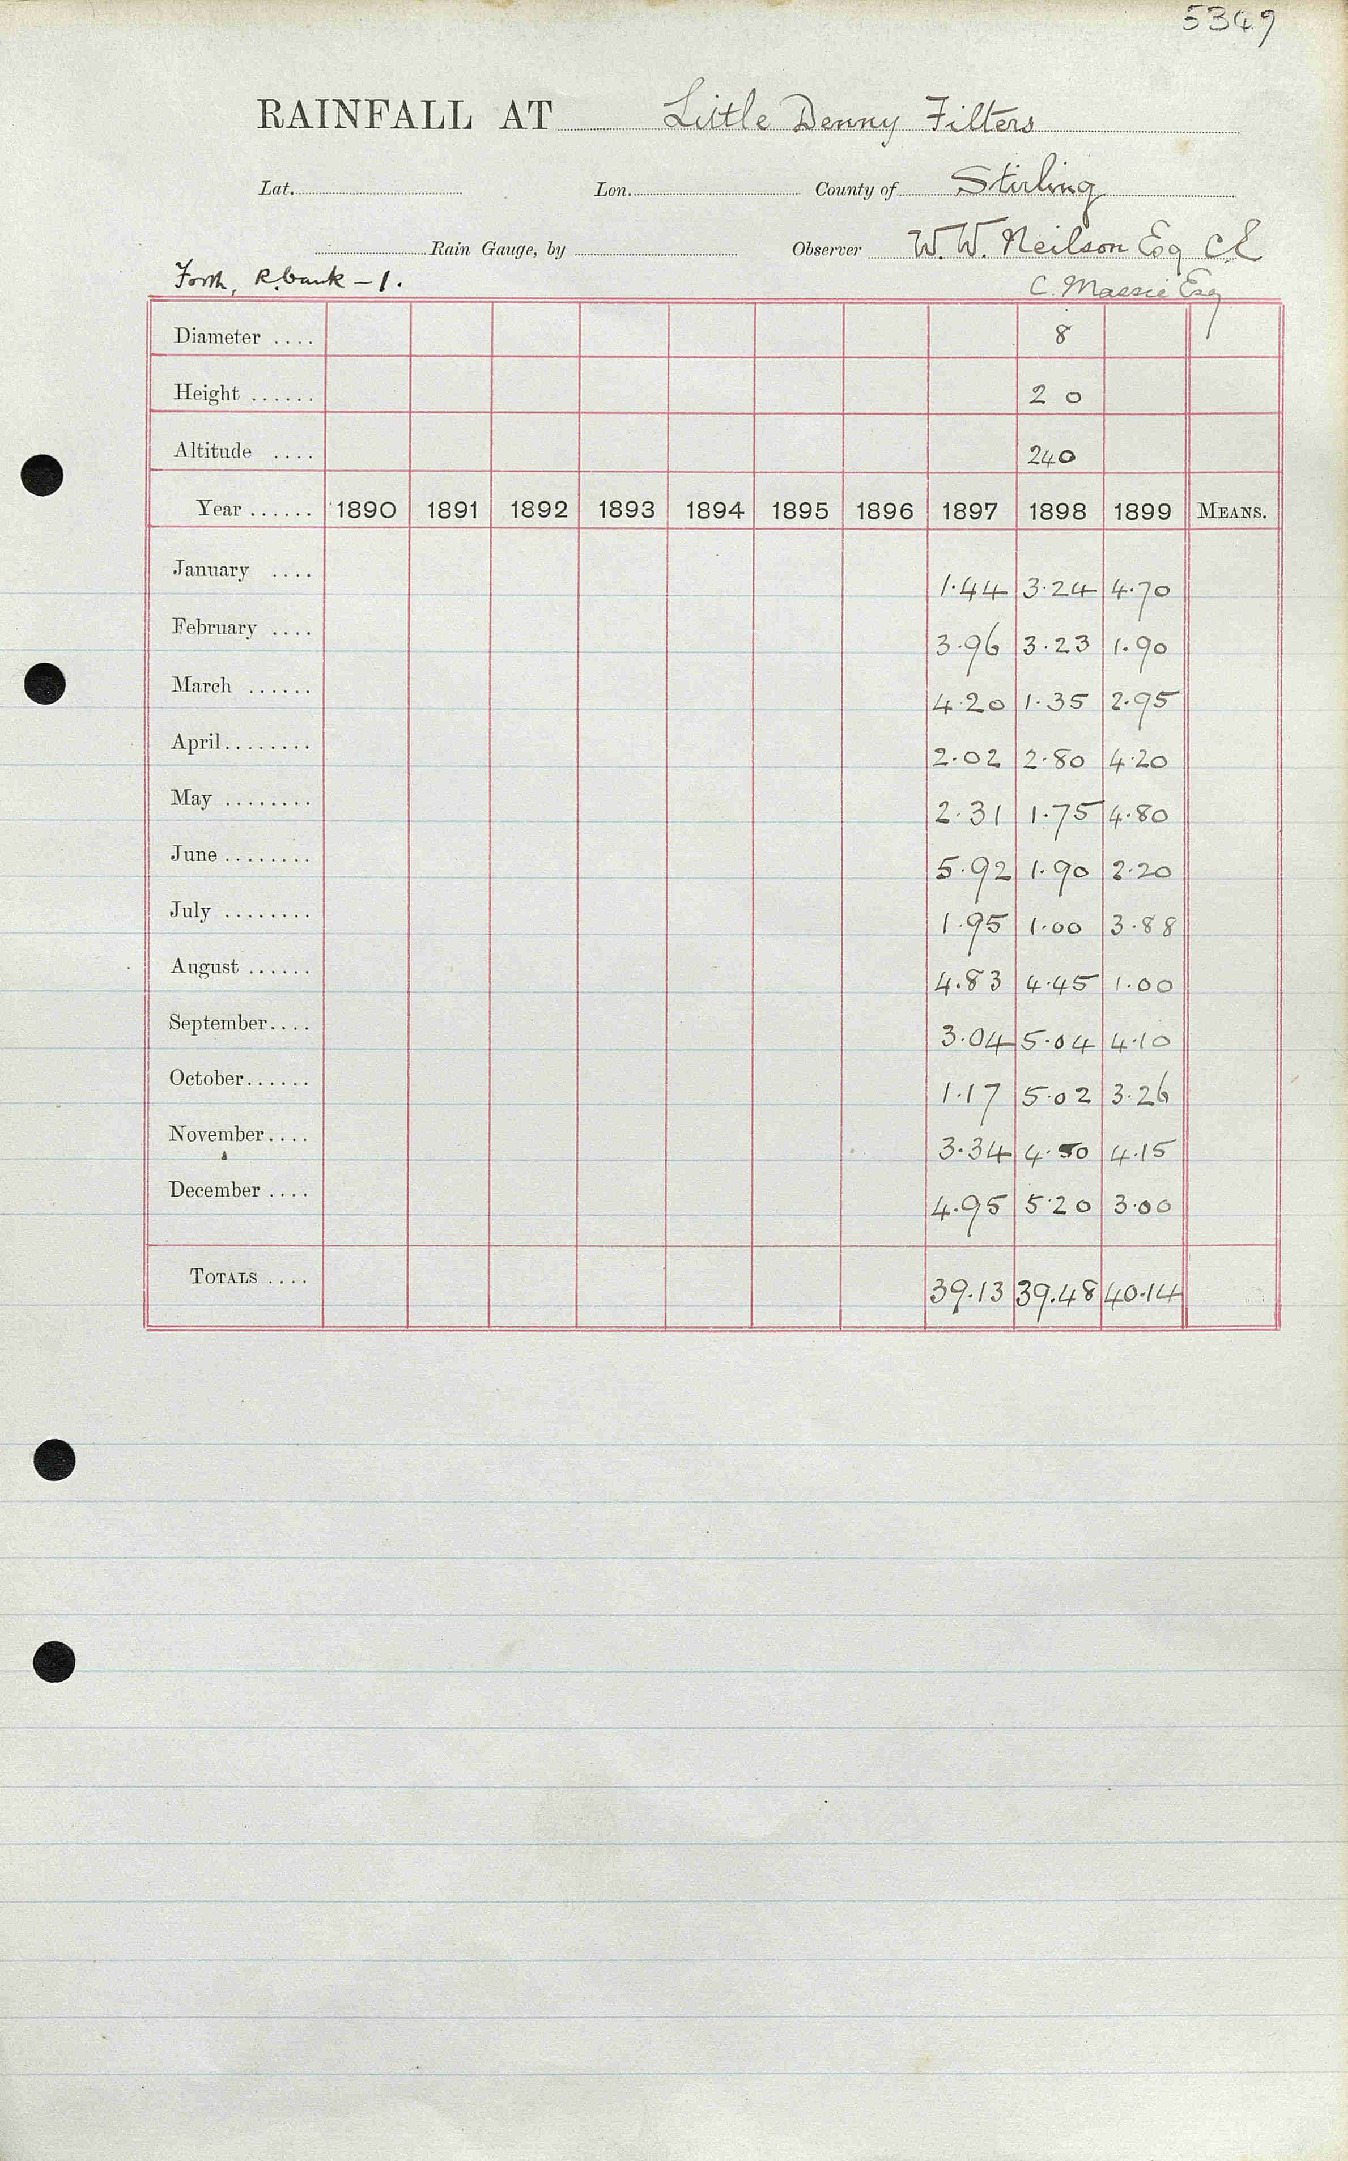 5349
RAINFALL AT Little Denny Filters
Lat. Lon. County of Stirling
Rain Gauge, by Observer W. W. Neilson Esq CE
Forth, R.bank - 1. C. Massie Esq
Diameter .... 8
Height ...... 2 0
Altitude .... 240
Year ...... 1890 1891 1892 1893 1894 1895 1896 1897 1898 1899 MEANS.
January .... 1.44 3.24 4.70
February .... 3.96 3.23 1.90
March ...... 4.20 1.35 2.95
April ........ 2.02 2.80 4.20
May ........ 2.31 1.75 4.80
June ........ 5.92 1.90 2.20
July ........ 1.95 1.00 3.88
August ...... 4.83 4.45 1.00
September.... 3.04 5.04 4.10
October...... 1.17 5.02 3.26
November.... 3.34 4.50 4.15
December .... 4.95 5.20 3.00
TOTALS .... 39.13 39.48 40.14